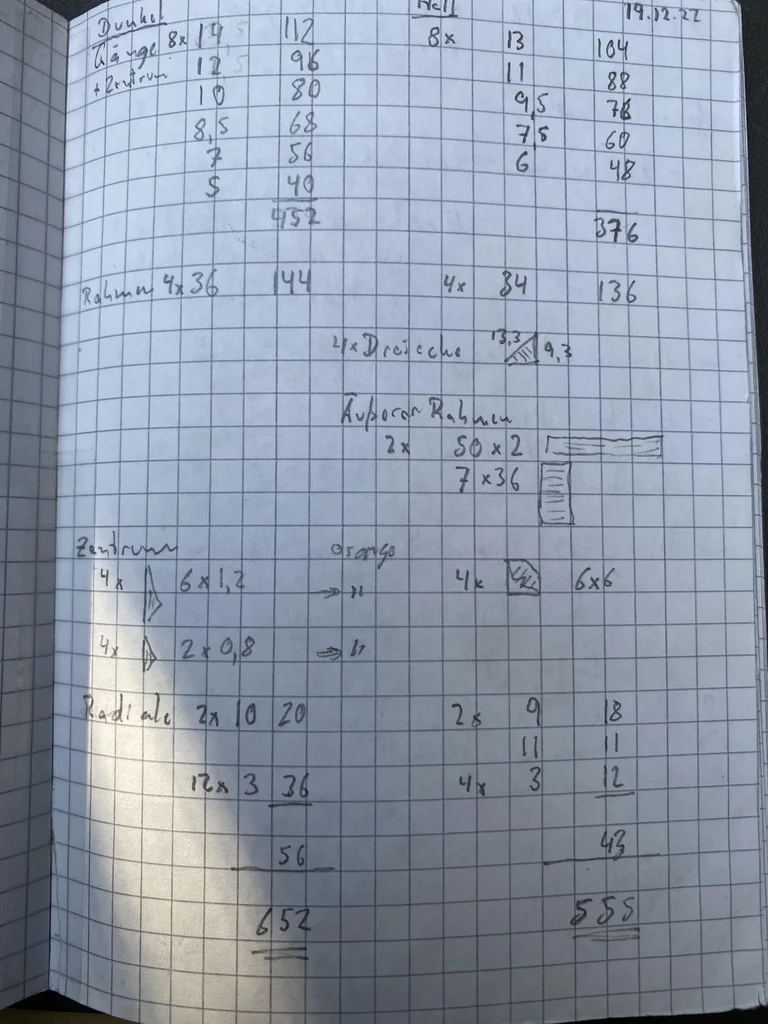 Dunkel Hell 19.12.22
Gänge 8x 14 112 8x 13 104
+ Zentrum 12 96 11 88
10 80 9,5 76
8,5 68 7,5 60
7 56 6 48
5 40
452 376
Rahmen 4x36 144 4x 34 136
4x Dreiecke 13,3 9,3
Äußerer Rahmen
2x 50 x 2
7 x 36
Zentrum orange
4x 6 x 1,2 → " 4x 6x6
4x 2 x 0,8 → "
Radiale 2x 10 20 2x 9 18
11 11
12x 3 36 4x 3 12
56 43
652 555